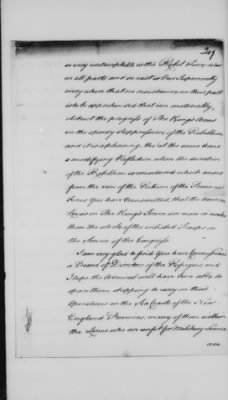 209
so very contemptible is the Rebel Force now
in all parts and so vast is Our Superiority
every where that no resistance on their part
is to be apprehended that can materially
obstruct the progress of The King's Arms
in the speedy Suppression of the Rebellion
and it is a pleasing, tho' at the same time
a mortifying Reflection when the duration
of the Rebellion is considered which arises
from the view of the Return of the Provincial
Forces You have transmitted, that the American
Levies in The King's Service are more in number
than the whole of the enlisted Troops in
the Service of the Congress.
I am very glad to find You have Commissioned
a Board of Directors of the Refugees and
I hope the Admiral will have been able to
spare them shipping to carry on their
Operations on the Sea Coasts of the New
England Provinces, many of them within
the Lines who are unfit for Military Service
are